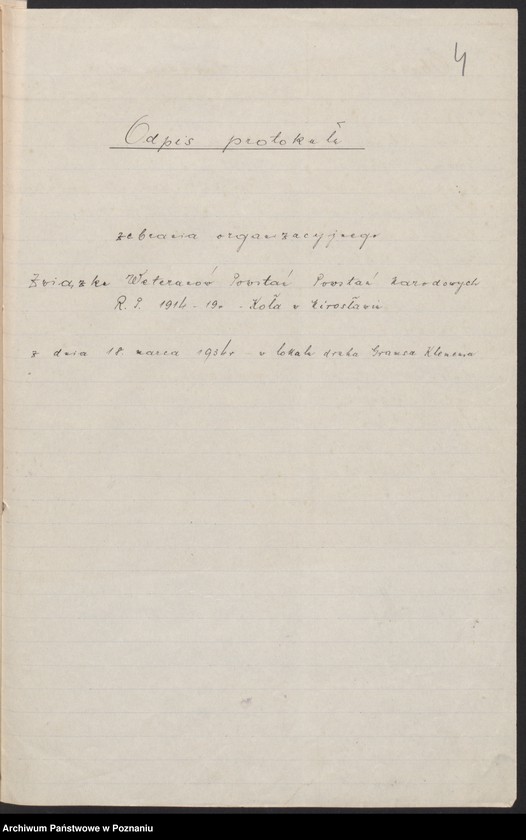 4
Odpis protokułu
zebrania organizacyjnego
Związku Weteranów Powstań Powstań Narodowych
R. P. 1914 - 19. - Koła w Mirosławiu
z dnia 18 marca 1936r w lokalu druha Klemensa
Archiwum Państwowe w Poznaniu